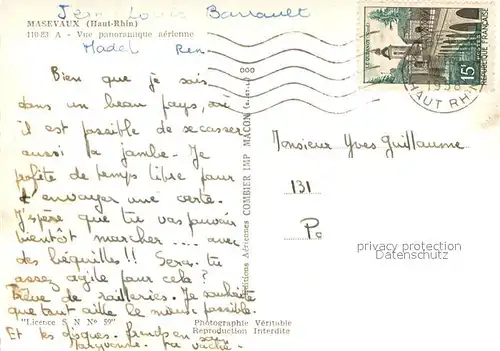 Jean Louis Barrault
MASEVAUX (Haut-Rhin)
110-83 A - Vue panoramique aérienne
Madel Ren
Bien que je sois
dans un beau pays, où
il est possible de se casser
aussi la jambe. Je
profite de temps libre pour
t'envoyer une carte.
J'espère que tu vas pouvoir
bientôt marcher .... avec
des béquilles !! Seras-tu
assez agile pour cela ?
Trève de railleries. Je souhaite
que tout aille le mieux possible.
"Licence S N No 59"
Et tes disques.
Photographie Véritable
Reproduction Interdite
Editions Aériennes COMBIER IMP MACON
15F
REPUBLIQUE FRANÇAISE
HAUT RHIN
Monsieur Yves Guillaume
131
Pa
privacy protection
Datenschutz